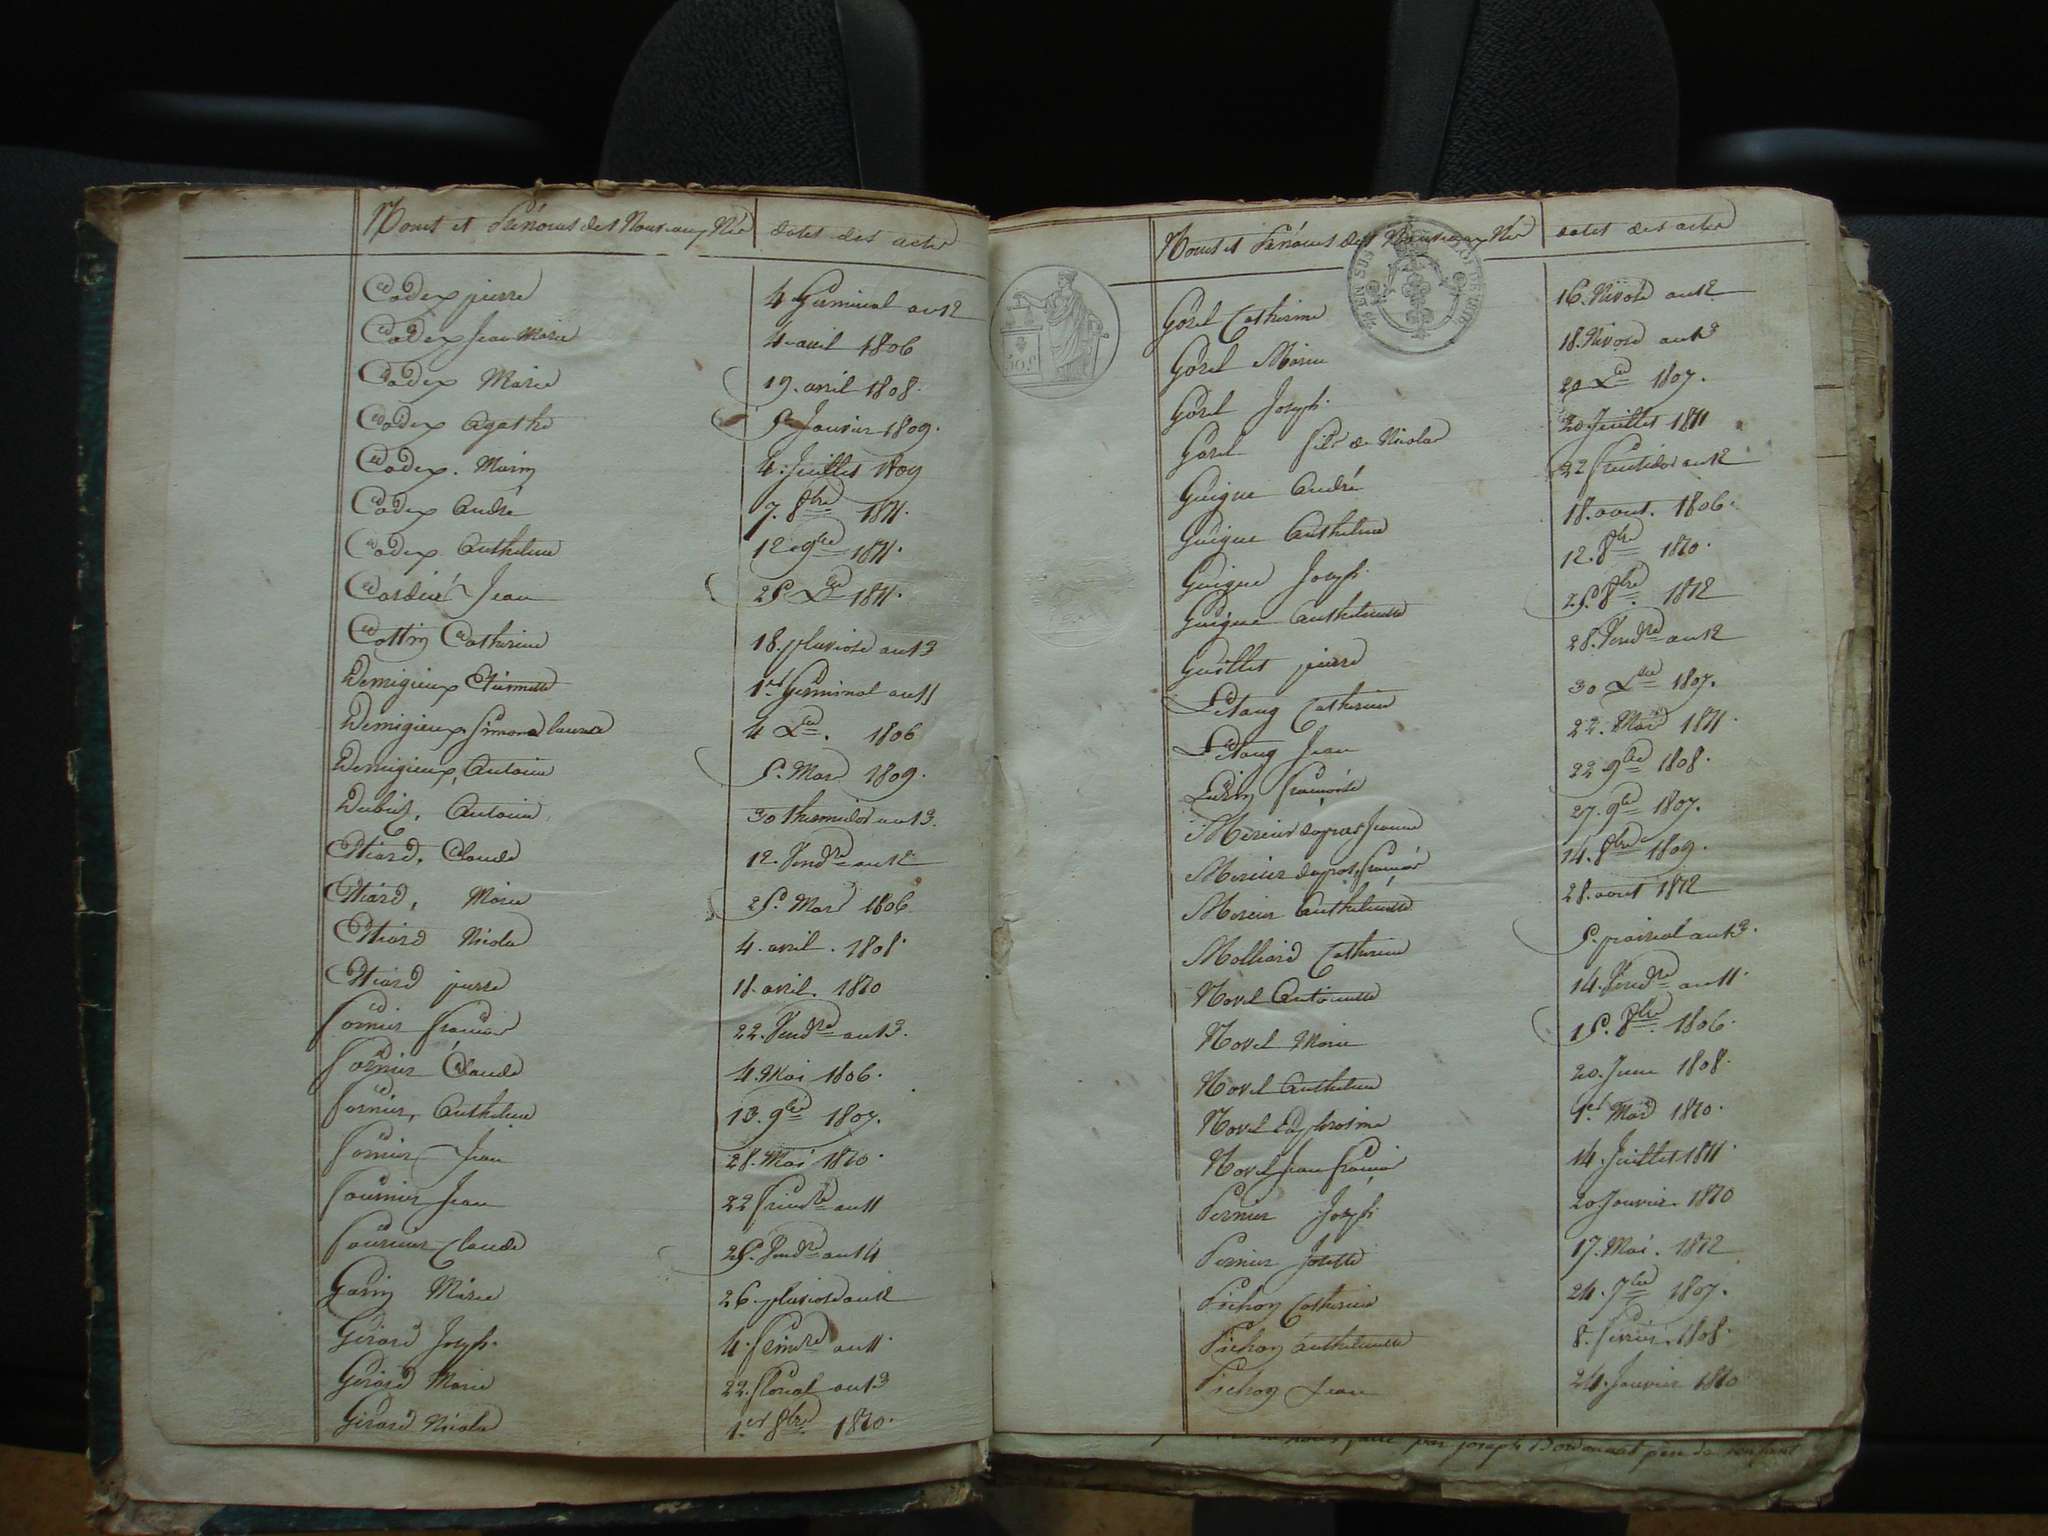 Noms et Prénoms des Nouveaux Nés dates des actes
Codex pierre 4 Germinal an 12
Codex Jean Marie 4 avril 1806
Codex Marie 19. avril 1808.
Codex Agathe 5 Janvier 1809.
Codex. Marin 4. Juillet 1809
Codex André 7. 8bre 1811.
Codex Anthelme 12 9bre 1811.
Jean 25 Xbre 1811.
Cottin Catherine 18. pluviose an 13
Demigieux Etiennette 1er Germinal an 11
Demigieux Simone laurence 4 Xbre. 1806
Demigieux, Antoine 5. Mars 1809.
Dubiez, Antoine 30 thermidor an 13.
Etiard, Claude 12. Vendre an 12
Etiard, Marie 25. Mars 1806
Etiard Nicolas 4. avril. 1808.
Etiard pierre 18. avril. 1810
Fornier François 22. Vendre an 13.
Fornier Claude 4. Mai 1806.
Fornier, Anthelme 13. 9bre 1807.
Fornier Jean 28. Mai 1810.
Fournier Jean 22 frimre an 11
Fournier Claude 25. Vendre an 14
Garin Marie 26. pluviose an 12
Girard Joseph. 4. frimre an 11
Girard Marie 22. floreal an 13
Girard Nicolas 1er 8bre 1810.
Noms et Prénoms des Nouveaux Nés dates des actes
Gorel Catherine 16. Nivose an 12
Gorel Marie 18. Nivose an 13
Gorel Joseph. 20 Xbre 1807.
Gorel fils de Nicolas 20. Juillet 1811
Guigue André 22 fructidor an 12
Guigue Anthelme 18. aout. 1806.
Guigue Joseph. 12. 8bre 1810.
Guigue Anthelmette 25. 8bre. 1812
Guillet pierre 28. Vendre an 12
Létang Catherine 30 Xbre 1807.
Létang Jean 22. Mars 1811.
Françoise 22 9bre 1808.
Mercier dupras Jeanne 27. 9bre 1807.
Mercier dupras, François 14. 8bre 1809.
Mercier Anthelmette 28. aout 1812
Molliard Catherine 5. prairial an 13.
Novel Antoinette 14. Vendre an 11.
Novel Marie 15. 8bre. 1806.
Novel Anthelme 20. Juin 1808.
Novel Euphrosine 1er. Mars 1810.
Novel Jean François 14. Juillet 1811.
Pernier Joseph. 20 Janvier. 1810
Pernier Josette 17. Mai. 1812
Pichon Catherine 24. 7bre 1807.
Pichon Anthelmette 8. fevrier. 1808.
Pichon Jean 24. Janvier 1810
par joseph père de l'enfant